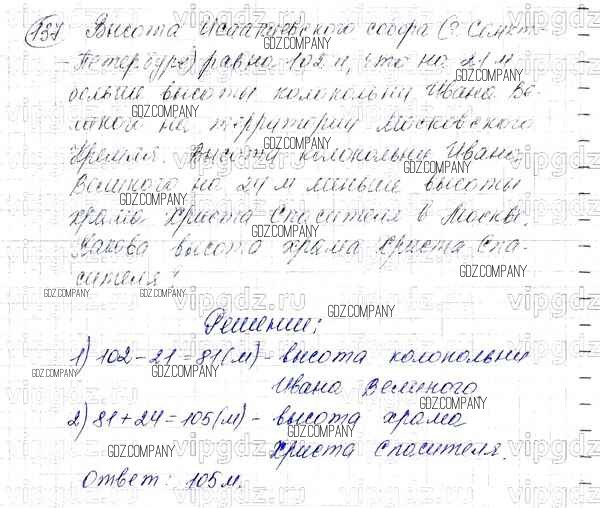 137 Высота Исаакиевского собора (г. Санкт-
-Петербург) равна 102 м, что на 21 м
больше высоты колокольни Ивана Ве-
ликого на территории Московского
Кремля. Высота колокольни Ивана
Великого на 24 м меньше высоты
храма Христа Спасителя в Москве.
Какова высота храма Христа Спа-
сителя?
Решение:
1) 102 - 21 = 81 (м) - высота колокольни
Ивана Великого
2) 81 + 24 = 105 (м) - высота храма
Христа Спасителя.
Ответ: 105 м.
GDZ.COMPANY
vipgdz.ru